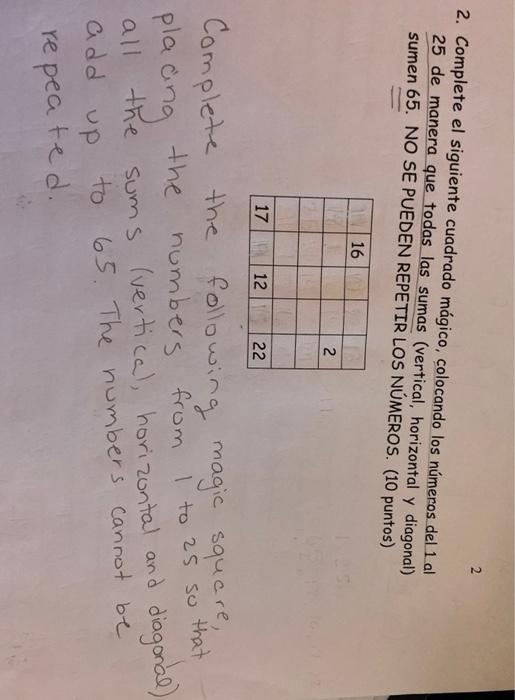 2
2. Complete el siguiente cuadrado mágico, colocando los números del 1 al
25 de manera que todas las sumas (vertical, horizontal y diagonal)
sumen 65. NO SE PUEDEN REPETIR LOS NÚMEROS. (10 puntos)
16
2
17 12 22
Complete the following magic square,
placing the numbers from 1 to 25 so that
all the sums (vertical, horizontal and diagonal)
add up to 65. The numbers cannot be
repeated.